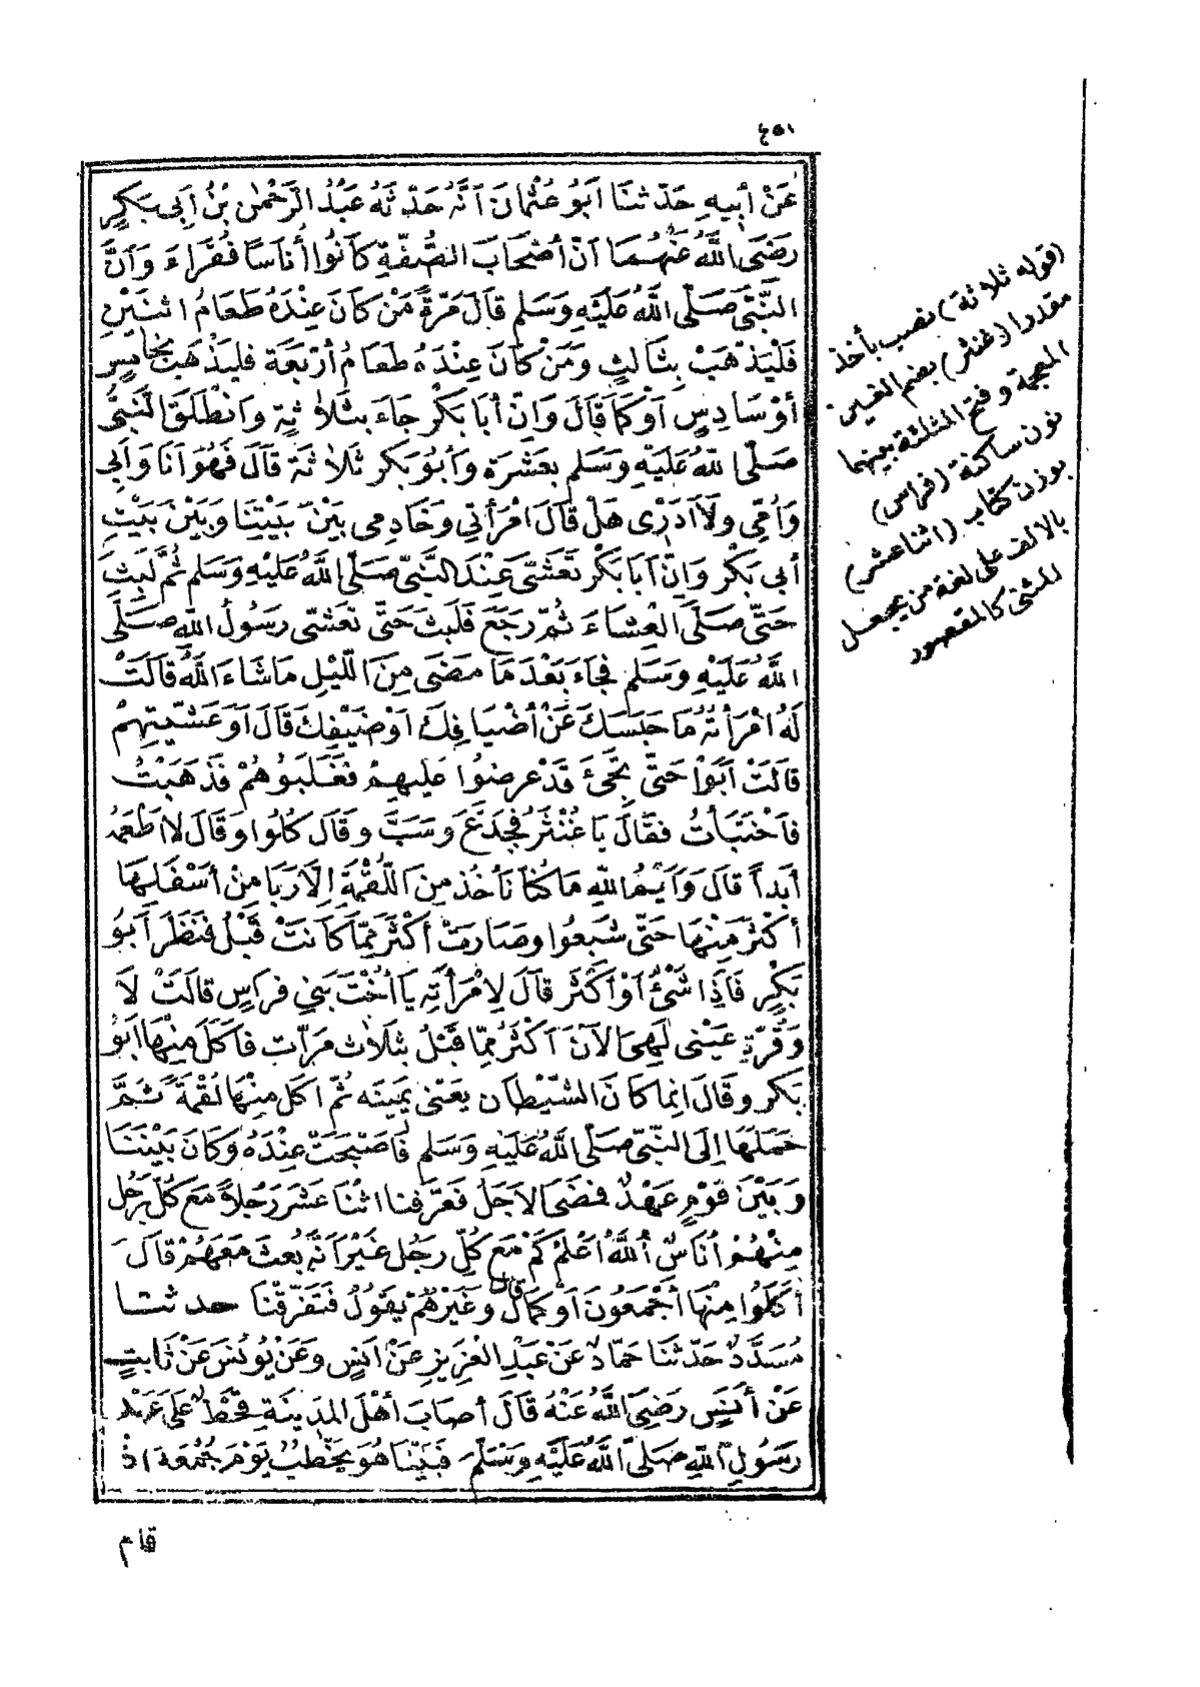 ٤٥١
عَنْ أَبِيهِ حَدَّثَنَا أَبُو عُثْمَانَ أَنَّهُ حَدَّثَهُ عَبْدُ الرَّحْمٰنِ بْنُ أَبِي بَكْرٍ
رَضِيَ اللَّهُ عَنْهُمَا أَنَّ أَصْحَابَ الصُّفَّةِ كَانُوا أُنَاسًا فُقَرَاءَ وَأَنَّ
النَّبِيَّ صَلَّى اللَّهُ عَلَيْهِ وَسَلَّمَ قَالَ مَرَّةً مَنْ كَانَ عِنْدَهُ طَعَامُ اثْنَيْنِ
فَلْيَذْهَبْ بِثَالِثٍ وَمَنْ كَانَ عِنْدَهُ طَعَامُ أَرْبَعَةٍ فَلْيَذْهَبْ بِخَامِسٍ
أَوْ سَادِسٍ أَوْ كَمَا قَالَ وَإِنَّ أَبَا بَكْرٍ جَاءَ بِثَلَاثَةٍ وَانْطَلَقَ النَّبِيُّ
صَلَّى اللَّهُ عَلَيْهِ وَسَلَّمَ بِعَشَرَةٍ وَأَبُو بَكْرٍ ثَلَاثَةً قَالَ فَهُوَ أَنَا وَأَبِي
وَأُمِّي وَلَا أَدْرِي هَلْ قَالَ امْرَأَتِي وَخَادِمِي بَيْنَ بَيْتِنَا وَبَيْنَ بَيْتِ
أَبِي بَكْرٍ وَإِنَّ أَبَا بَكْرٍ تَعَشَّى عِنْدَ النَّبِيِّ صَلَّى اللَّهُ عَلَيْهِ وَسَلَّمَ ثُمَّ لَبِثَ
حَتَّى صَلَّى الْعِشَاءَ ثُمَّ رَجَعَ فَلَبِثَ حَتَّى تَعَشَّى رَسُولُ اللَّهِ صَلَّى
اللَّهُ عَلَيْهِ وَسَلَّمَ فَجَاءَ بَعْدَ مَا مَضَى مِنَ اللَّيْلِ مَا شَاءَ اللَّهُ قَالَتْ
لَهُ امْرَأَتُهُ مَا حَبَسَكَ عَنْ أَضْيَافِكَ أَوْ ضَيْفِكَ قَالَ أَوَ عَشَّيْتِهِمْ
قَالَتْ أَبَوْا حَتَّى تَجِيءَ قَدْ عَرَضُوا عَلَيْهِمْ فَغَلَبُوهُمْ فَذَهَبْتُ
فَاخْتَبَأْتُ فَقَالَ يَا غُنْثَرُ فَجَدَّعَ وَسَبَّ وَقَالَ كُلُوا وَقَالَ لَا أَطْعَمُهُ
أَبَداً قَالَ وَايْمُ اللَّهِ مَا كُنَّا نَأْخُذُ مِنَ اللُّقْمَةِ إِلَّا رَبَا مِنْ أَسْفَلِهَا
أَكْثَرُ مِنْهَا حَتَّى شَبِعُوا وَصَارَتْ أَكْثَرَ مِمَّا كَانَتْ قَبْلُ فَنَظَرَ أَبُو
بَكْرٍ فَإِذَا شَيْءٌ أَوْ أَكْثَرُ قَالَ لِامْرَأَتِهِ يَا أُخْتَ بَنِي فِرَاسٍ قَالَتْ لَا
وَقُرَّةِ عَيْنِي لَهِيَ الْآنَ أَكْثَرُ مِمَّا قَبْلُ بِثَلَاثِ مَرَّاتٍ فَأَكَلَ مِنْهَا أَبُو
بَكْرٍ وَقَالَ إِنَّمَا كَانَ الشَّيْطَانُ يَعْنِي يَمِينَهُ ثُمَّ أَكَلَ مِنْهَا لُقْمَةً ثُمَّ
حَمَلَهَا إِلَى النَّبِيِّ صَلَّى اللَّهُ عَلَيْهِ وَسَلَّمَ فَأَصْبَحَتْ عِنْدَهُ وَكَانَ بَيْنَنَا
وَبَيْنَ قَوْمٍ عَهْدٌ فَمَضَى الْأَجَلُ فَعَرَّفْنَا اثْنَا عَشَرَ رَجُلاً مَعَ كُلِّ رَجُلٍ
مِنْهُمْ أُنَاسٌ اللَّهُ أَعْلَمُ كَمْ مَعَ كُلِّ رَجُلٍ غَيْرَ أَنَّهُ بَعَثَ مَعَهُمْ قَالَ
أَكَلُوا مِنْهَا أَجْمَعُونَ أَوْ كَمَا قَالَ وَغَيْرُهُمْ يَقُولُ فَتَفَرَّقْنَا حدثنا
مُسَدَّدٌ حَدَّثَنَا حَمَّادٌ عَنْ عَبْدِ الْعَزِيزِ عَنْ أَنَسٍ وَعَنْ يُونُسَ عَنْ ثَابِتٍ
عَنْ أَنَسٍ رَضِيَ اللَّهُ عَنْهُ قَالَ أَصَابَ أَهْلَ الْمَدِينَةِ قَحْطٌ عَلَى عَهْدِ
رَسُولِ اللَّهِ صَلَّى اللَّهُ عَلَيْهِ وَسَلَّمَ فَبَيْنَا هُوَ يَخْطُبُ يَوْمَ جُمُعَةٍ إِذْ
قام
(قوله ثلاثة) نصب بأخذ
مقدرا (غنثر) بضم الغين
المعجمة وفتح المثلثة بينهما
نون ساكنة (فراس)
بوزن كتاب (اثنا عشر)
بالالف على لغة من يجعل
المثنى كالمقصور